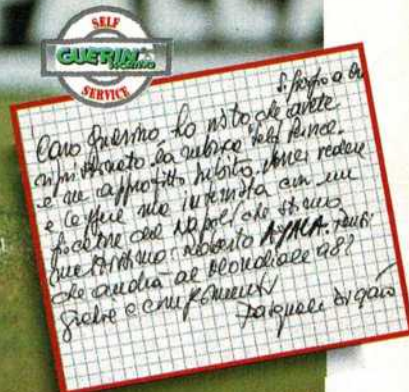 SELF
GUERIN SPORTIVO
SERVICE
S. Giorgio a Cr.
Caro Guerino, ho visto che avete
ripristinato la rubrica "Self Service"
e ne approfitto subito. Vorrei vedere
e leggere una intervista con un
giocatore del Napoli che stimo
moltissimo: Roberto AYALA. Pensi
che andrà al Mondiale 98?
Grazie e complimenti
Pasquale Di